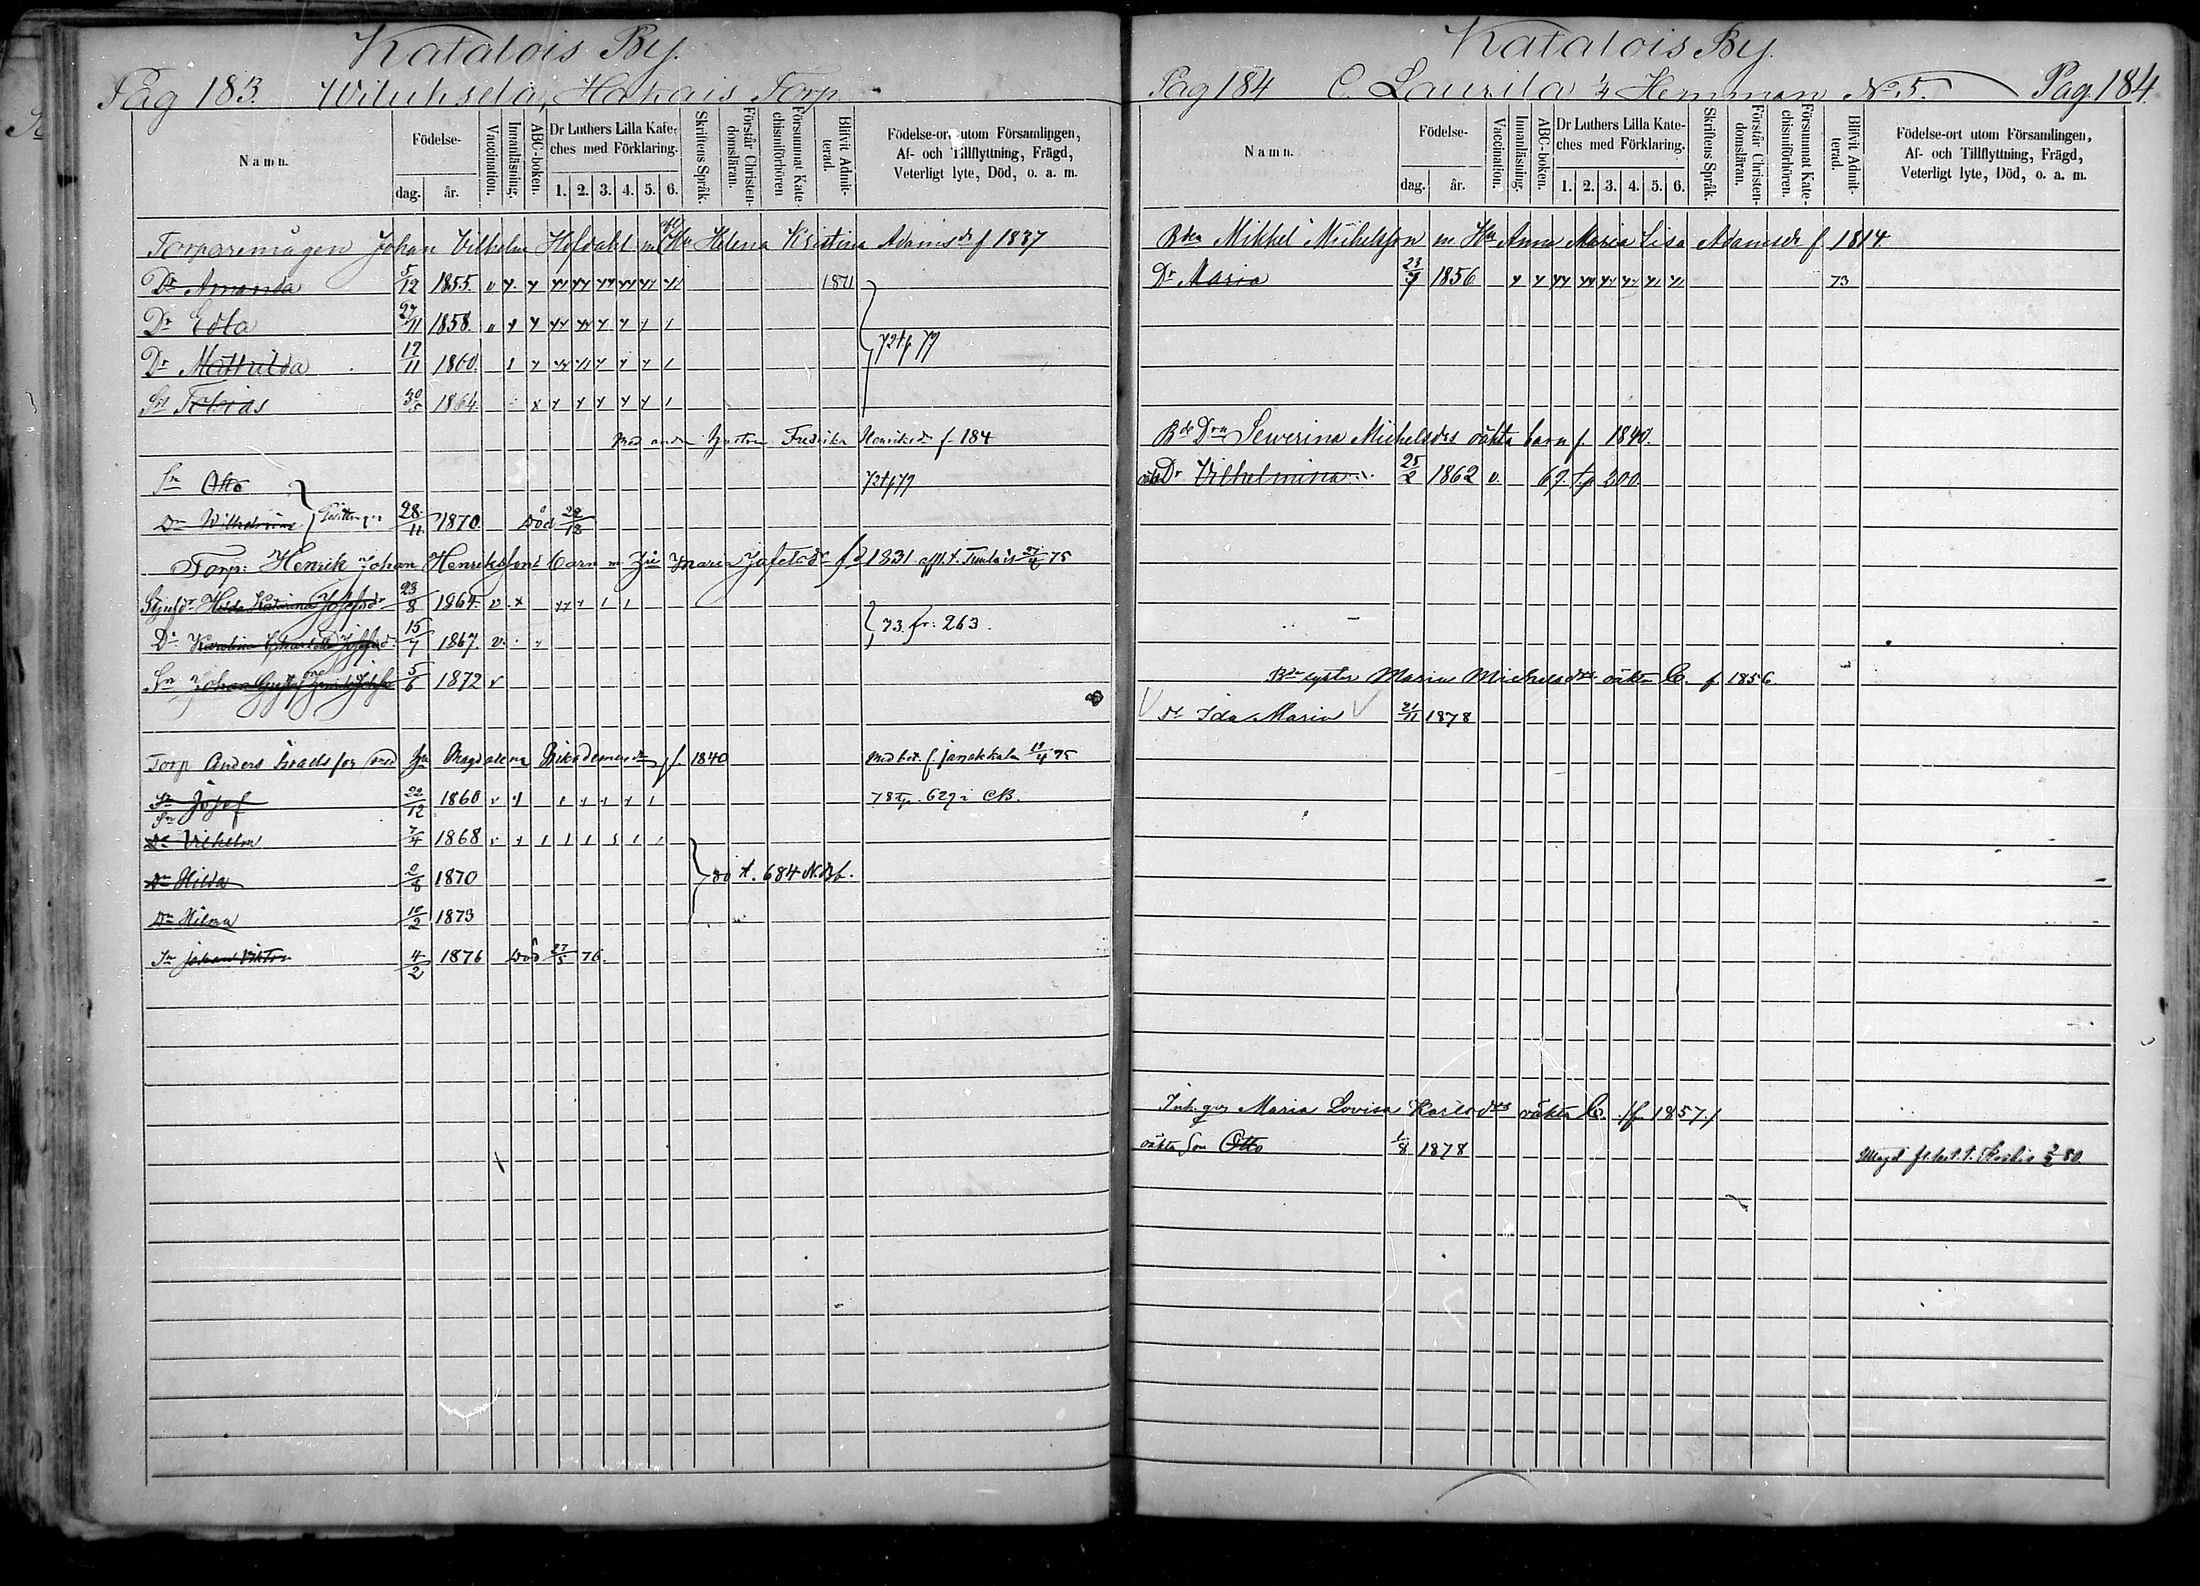 Katalois By.
Pag 183. Wiluksela, Hakais Torp
Namn.
Födelse-
dag. år.
Vaccination.
Innanläsning.
ABC-boken.
Dr Luthers Lilla Kate-
ches med Förklaring.
1. 2. 3. 4. 5. 6.
Skriftens Språk.
Förstår Christen-
domsläran.
Försummat Kate-
chismiförhören
Blifvit Admit-
terad.
Födelse-ort utom Församlingen,
Af- och Tillflyttning, Frägd,
Veterligt lyte, Död, o. a. m.
Torparemågen Johan Vilhelm Hofdahl m Hu Helena Kristina Adamsdr f 1837
Dr Amanda 5/12 1855. 1871
Dr Edla 27/11 1858.
Dr Mathilda 17/11 1860. 72 tp 79
Sn Tobias 30 1864.
Med andra hustrun Fredrika Henriksdr f. 184
Sn Otto 72 tp 79
Dr Wilhelmina Tvillingar 28/11 1870 Död 29/12
Torp: Henrik Johan Henrikssons barn m Maria Josefsdr fd 1831 75
Hilda Katarina Josefsdr 23/8 1864. v
Dr Karolina Charlotta Josefsdr 15/7 1867. v 73. fr. 263.
Sn Johan Gustaf 5/6 1872 v
Torp Anders Israelsson med Hu Magdalena f. 1840 Med bet. f. Janakkala 19/4 75
Sn Josef 22/12 1860 78 tp. 629 i CB.
Sn
Dr Vilhelm 7/4 1868
Dr Hilda 9/8 1870 80 t. 684 N. Bf.
Dr Hilma 10/2 1873
Sn Johan Viktor 4/2 1876 Död 27/5 76.
Katalois By.
Pag 184 C. Laurila 1/4 Hemman No 5. Pag. 184.
Namn.
Födelse-
dag. år.
Vaccination.
Innanläsning.
ABC-boken.
Dr Luthers Lilla Kate-
ches med Förklaring.
1. 2. 3. 4. 5. 6.
Skriftens Språk.
Förstår Christen-
domsläran.
Försummat Kate-
chismiförhören.
Blifvit Admit-
terad.
Födelse-ort utom Församlingen,
Af- och Tillflyttning, Frägd,
Veterligt lyte, Död, o. a. m.
Bdn Mikkel Michelsson m. Hu Anna Maria Lisa Adamsdr f 1814
Dr Maria 23/7 1856 73
Bde Drn Sewerina Michelsdrs oäkta barn f. 1840.
oäkta Dr Vilhelmina 25/2 1862 v. 69 tp 200.
Bdn syster Maria Michelsdrs oäkta b. f. 1856
Dr Ida Maria 21/11 1878
Inh. qv Maria Lovisa Karlsdrs oäkta b. /f 1857./
oäkta Son Otto 1/8 1878 80